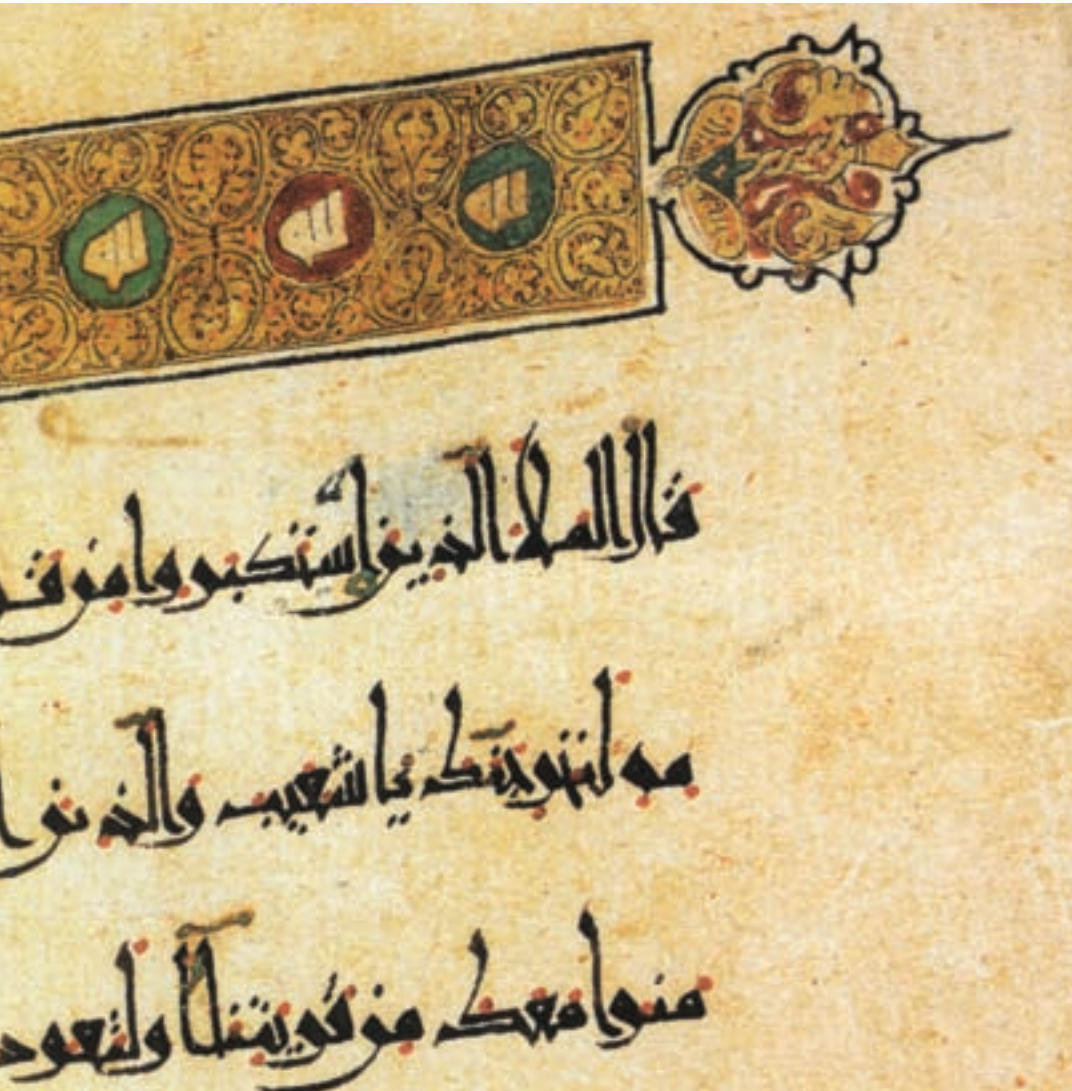 قال الملا الذين استكبروا من قو
مه لنخرجنك يا شعيب والذين ا
منوا معك من قريتنا او لتعود